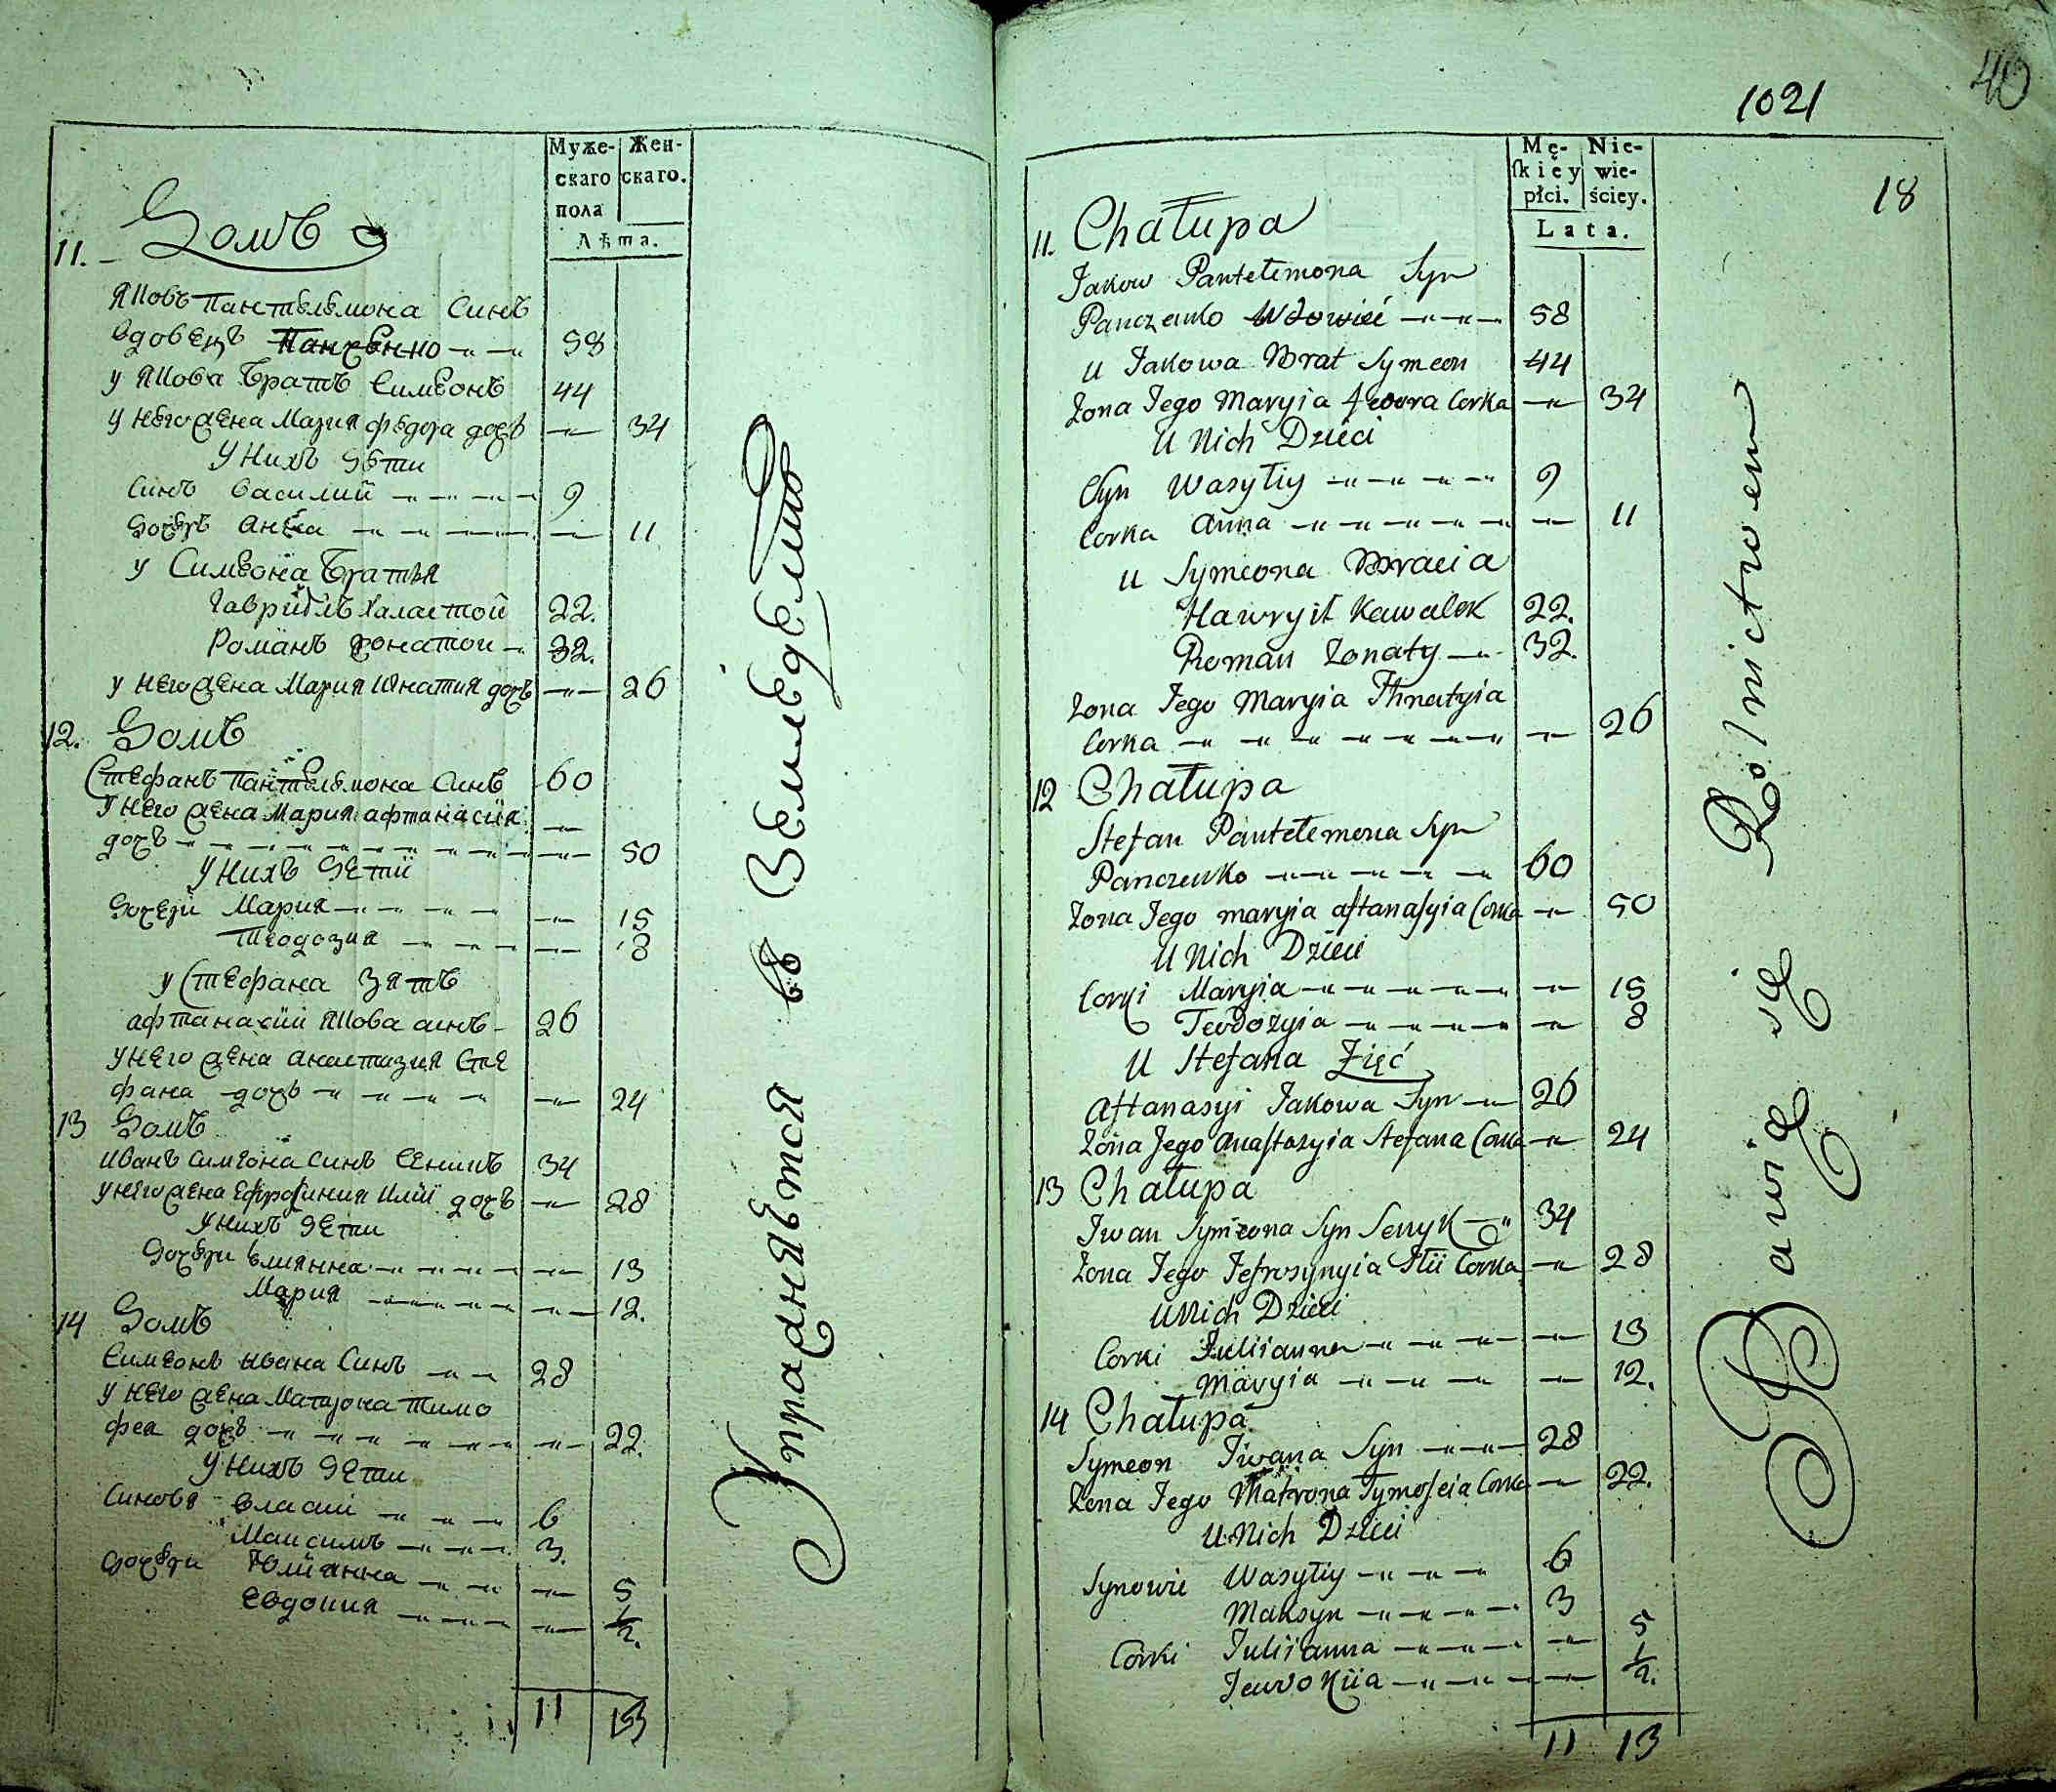 Муже-
скаго
пола
Жен-
скаго.
Лѣта.
11. Домъ
Яковъ Пантелемона Синъ
вдовецъ Панченко 58
у Якова Братъ Симеонъ 44
у него жена Мария Федора дочъ 34
У нихъ дети
Синъ Василий 9
Дочеръ Анна 11
у Симеона Братья
Гавриилъ Халастой 22.
Романъ жонатои 32.
у него жена Мария Игнатия дочъ 26
12. Домъ
Стефанъ Пантелемона Синъ 60
У него жена Мария афтанасия
дочъ 50
У нихъ дети
Дочери Мария 15
Теодозия 8
у Стефана Зять
афтанасий Якова синъ 26
у него жена анастазия Сте
фана дочъ 24
13 Домъ
Иванъ Симеона Синъ Сеникъ 34
у него жена Ефросиния Илии дочъ 28
У нихъ дети
Дочери Улиянна 13
Мария 12.
14 Домъ
Симеонъ Ивана Синъ 28
у него жена Матрона Тимо
феа дочъ 22.
У нихъ дети
Синовя 6
Максимъ 3.
Дочери Юлианна 5
Евдокия 1/2.
11 13
Упражняется въ Земледелии
40
1021
18
Mę-
ſkiey
płci.
Nie-
wie-
ściey.
Lata.
11. Chałupa
Jakow Pantełemona Syn
Panczenko Wdowiec 58
U Jakowa Brat Symeon 44
Zona Jego Maryia Fedora Corka 34
U Nich Dzieci
Syn Wasyliy 9
Corka Anna 11
U Symeona Bracia
Hawryił Kawalek 22.
Roman Zonaty 32.
Zona Jego Maryia Ihnatyia
Corka 26
12 Chałupa
Stefan Pantełemona Syn
Panczenko 60
Zona Jego maryia aftanaſyia Corka 50
U Nich Dzieci
Corki Maryia 15
Teodozyia 8
U Stefana Zięć
Aftanasyi Jakowa Syn 26
Zona Jego Anaſtazyia Stefana Corka 24
13 Chałupa
Iwan Symeona Syn Senyk 34
Zona Jego Jefrosynyia Ilii Corka 28
U Nich Dzieci
Corki Juliianna 13
Maryia 12.
14 Chałupa
Symeon Iwana Syn 28
Zona Jego Matrona Tymofeia Corka 22.
U Nich Dzieci
Synowie Wasyliy 6
Maksym 3
Corki Juliianna 5
Jewdokiia 1/2.
11 13
Bawią się Rolnictwem